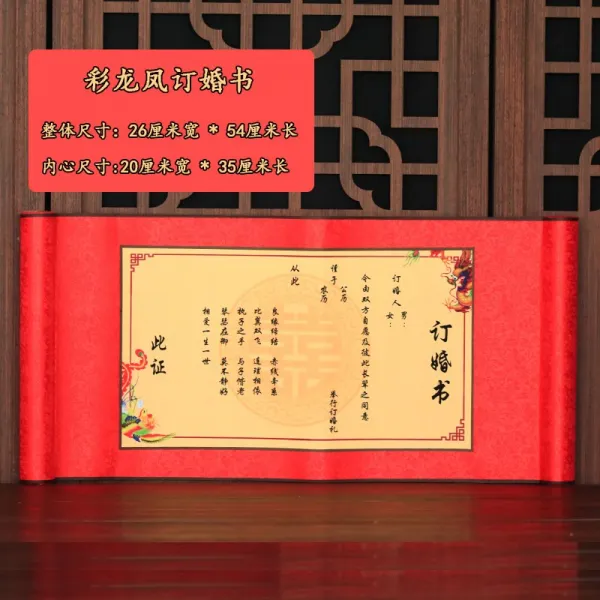 彩龙凤订婚书
整体尺寸: 26厘米宽 * 54厘米长
内心尺寸:20厘米宽 * 35厘米长
订婚书
订婚人 男:
女:
今由双方自愿及彼此长辈之同意
公历
于 农历 举行订婚礼
从此
良缘缔结 赤线牵系
比翼双飞 连理相依
执子之手 与子偕老
琴瑟在御 莫不静好
相爱一生一世
此证